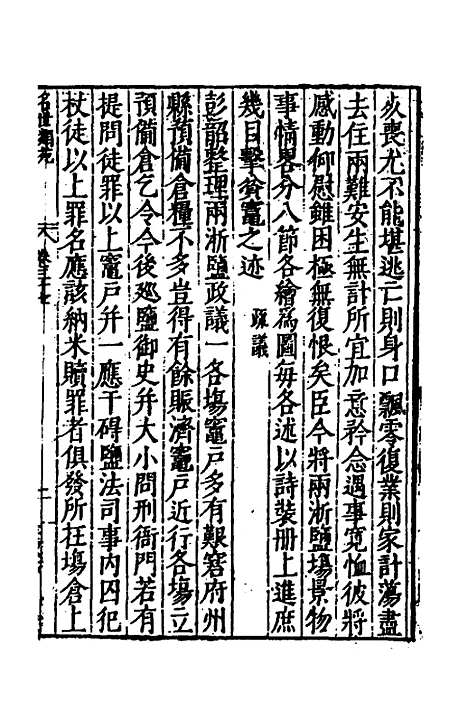 火喪尤不能堪逃亡則身口飄零復業則家計蕩盡
去住兩難安生無計所宜加意矜念遇事寬恤彼將
感動仰慰雖困極無復恨矣臣今將兩浙鹽場景物
事情畧分八節各繪爲圖每各述以詩裝册上進庶
幾目擊貧竈之迹 疏議
彭韶整理兩浙鹽政議一各塲竈戸多有艱窘府州
縣預備倉糧不多豈得有餘賑濟竈戸近行各塲立
預備倉乞令今後廵鹽御史并大小問刑衙門若有
提問徒罪以上竈戸并一應干碍鹽法司事內囚犯
杖徒以上罪名應該納米贖罪者俱發所在塲倉上
名世類苑 卷三十七